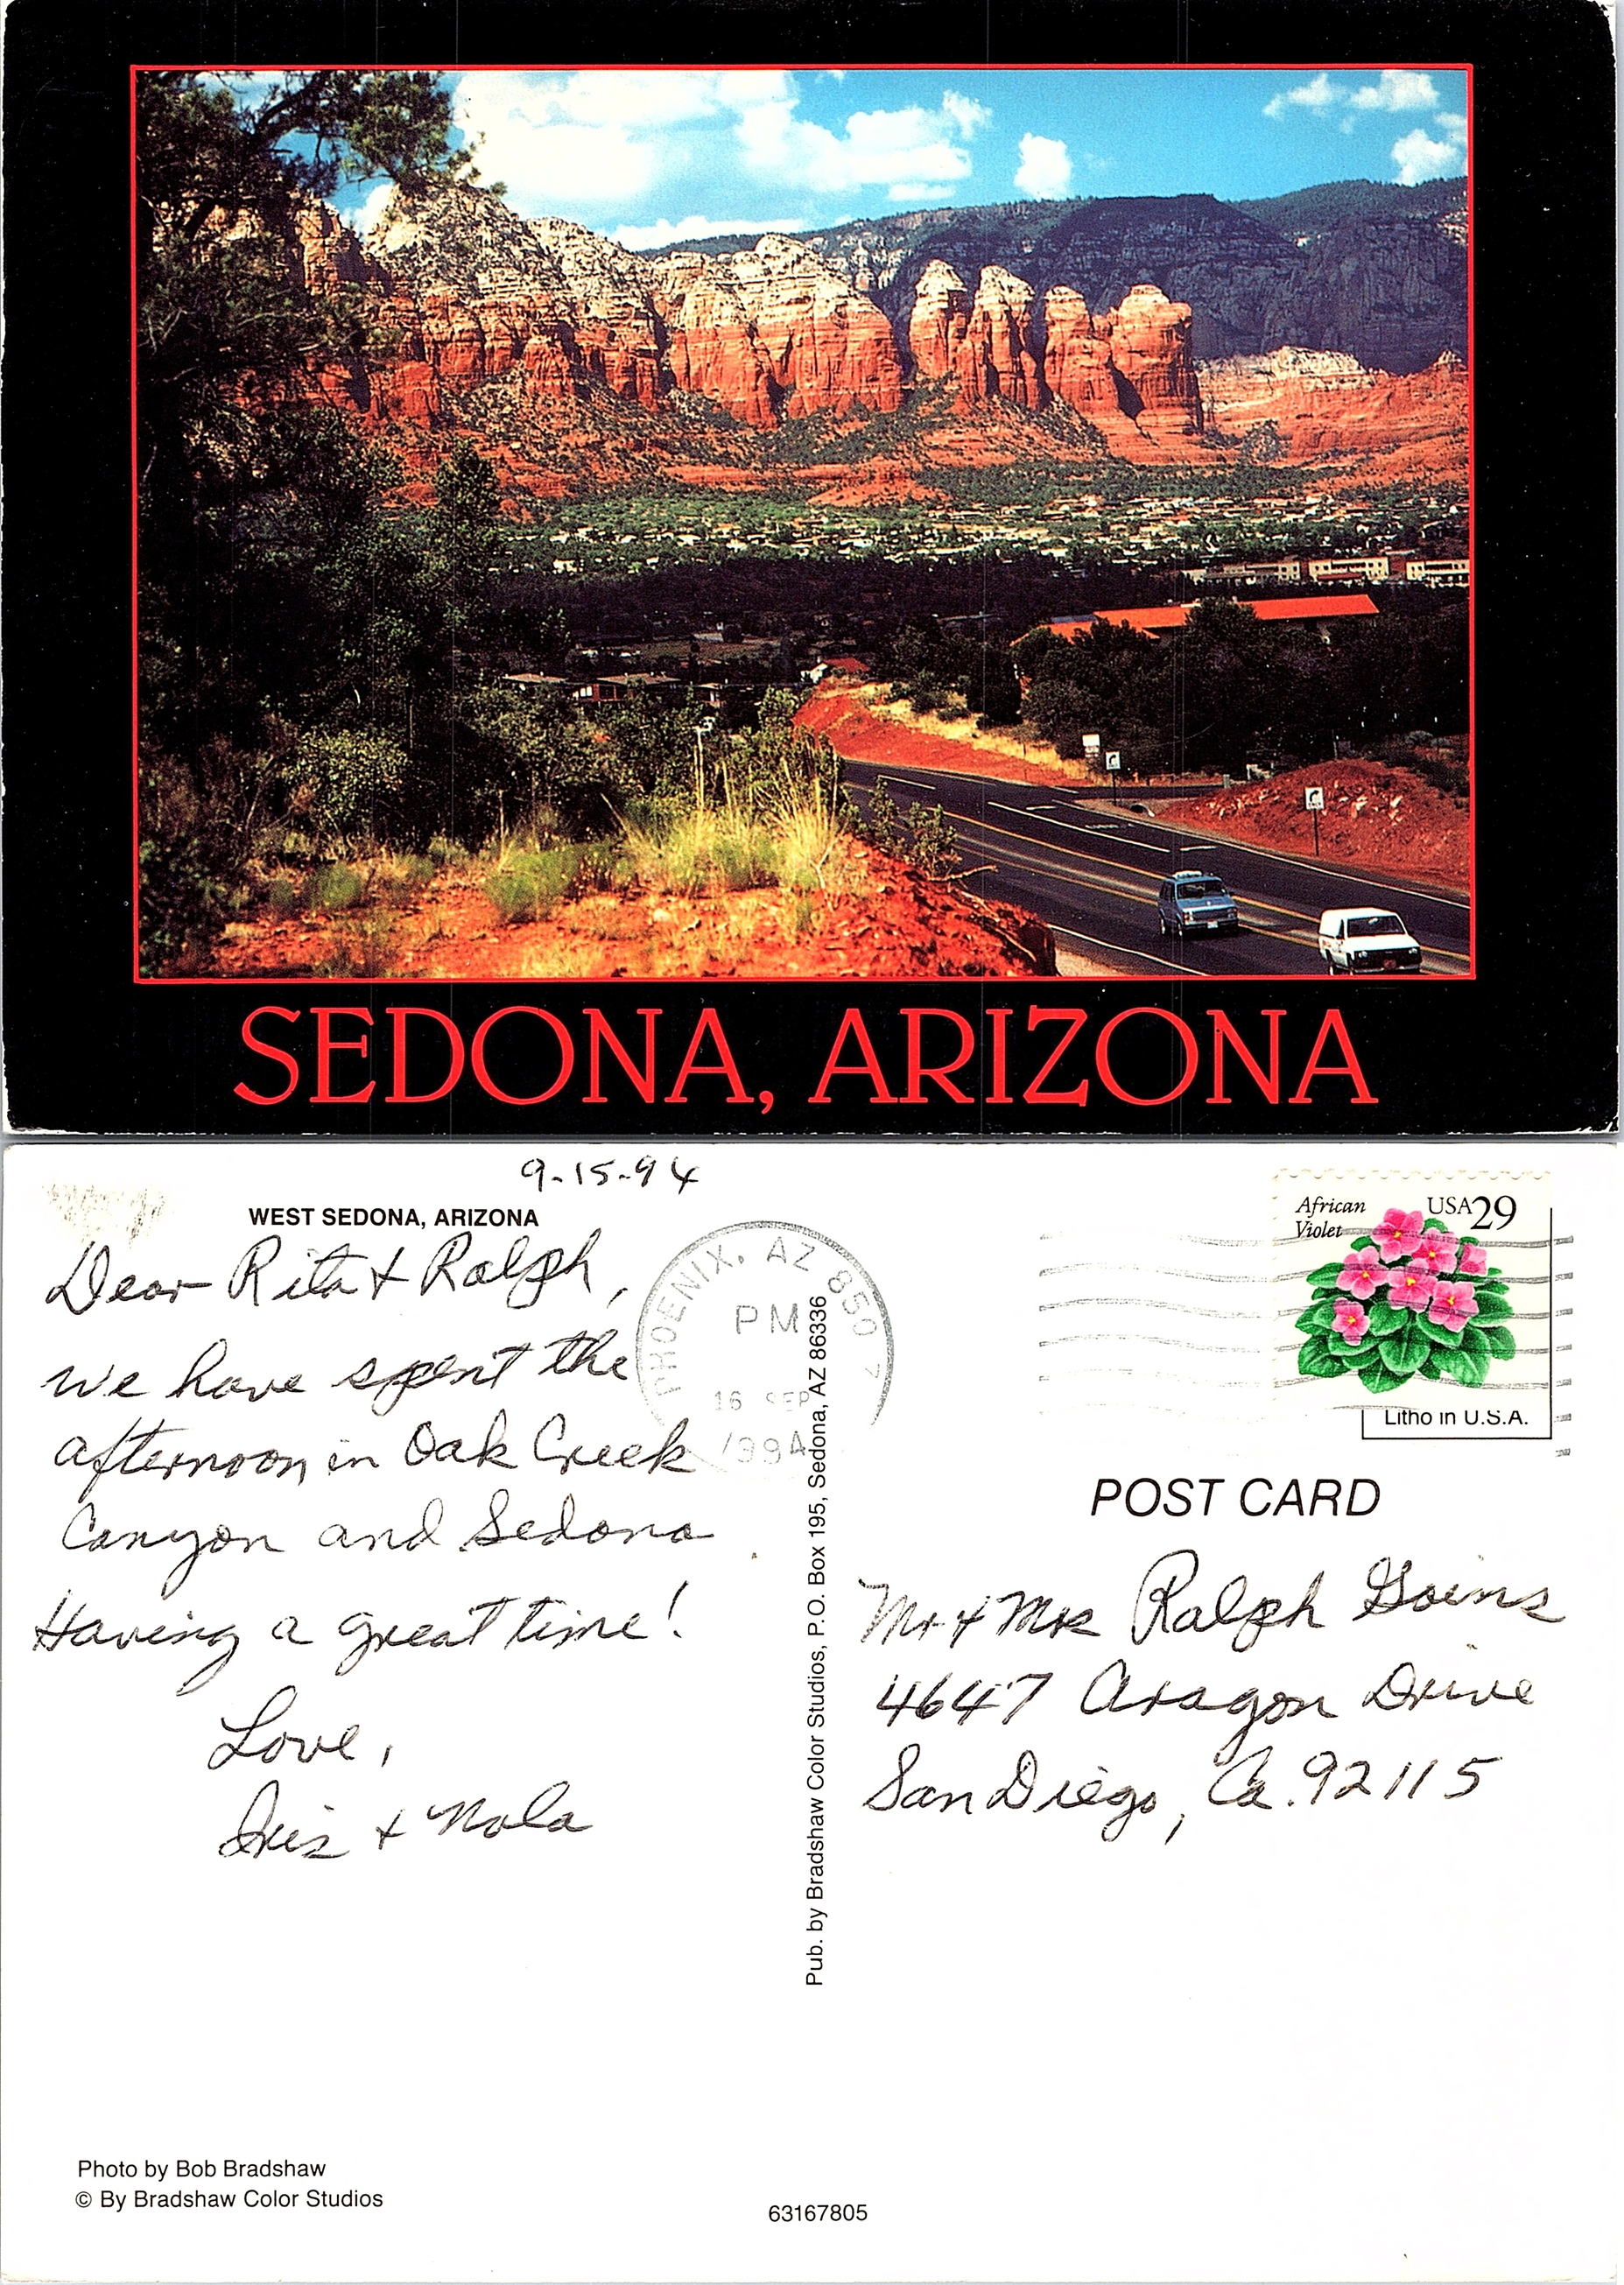 SEDONA, ARIZONA
9-15-94
WEST SEDONA, ARIZONA
Dear Rita & Ralph,
we have spent the
afternoon in Oak Creek
Canyon and Sedona
Having a great time!
Love,
Iris & Nola
PHOENIX, AZ 850
PM
16 SEP
1994
African
Violet
USA29
Litho in U.S.A.
POST CARD
Mr & Mrs Ralph Goins
4647 Aragon Drive
San Diego, Ca. 92115
Pub. by Bradshaw Color Studios, P.O. Box 195, Sedona, AZ 86336
Photo by Bob Bradshaw
© By Bradshaw Color Studios
63167805